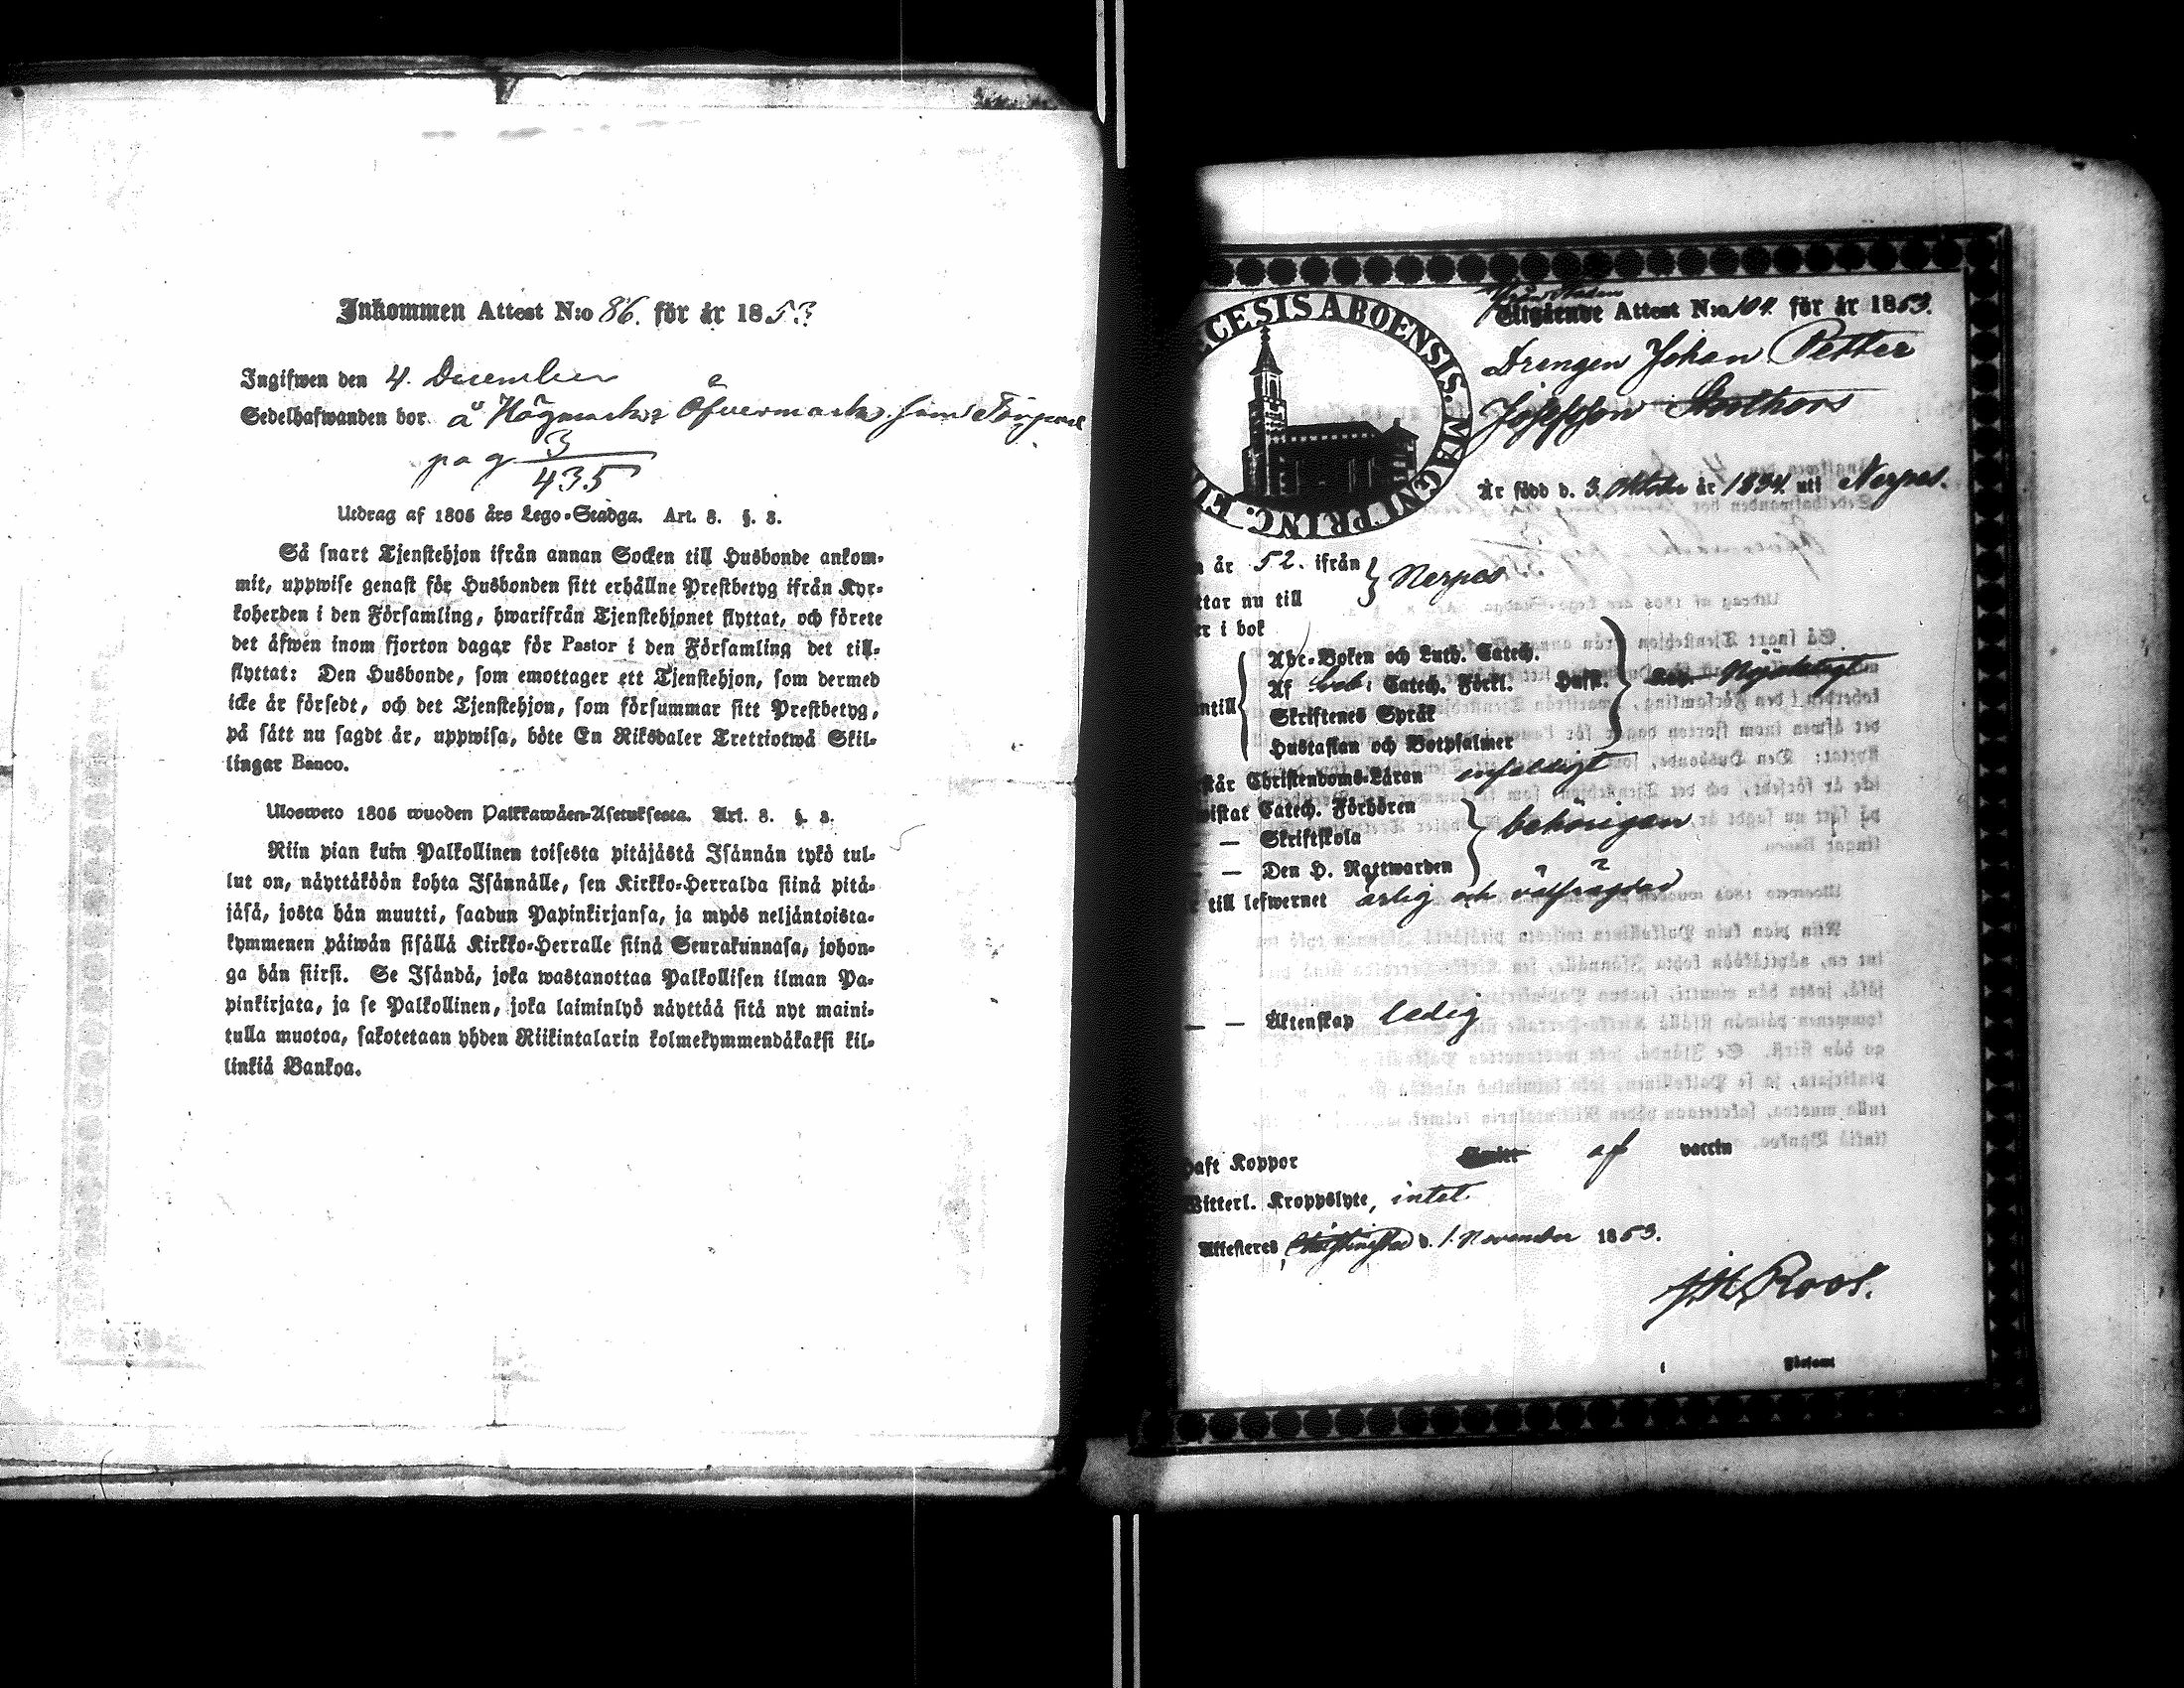 Inkommen Attest N:o 86. för år 1853
Ingifwen den 4. December
Sedelhafwanden bor å Högmarks Öfvermarks som
pag 3/435
Utdrag af 1805 års Lego-Stadga. Art. 8. §. 3.
Så snart Tjenstehjon ifrån annan Socken till Husbonde ankom-
mit, uppwise genast för Husbonden sitt erhållne Prestbetyg ifrån Kyr-
koherden i den Församling, hwarifrån Tjenstehjonet flyttat, och förete
det äfwen inom fjorton dagar för Pastor i den Församling det till-
flyttat: Den Husbonde, som emottager ett Tjenstehjon, som dermed
icke är försedt, och det Tjenstehjon, som försummar sitt Prestbetyg,
på sätt nu sagdt är, uppwisa, böte En Riksdaler Trettiotwå Skil-
lingar Banco.
Ulosweto 1805 wuoden Palkkawäen-Asetuksesta. Art. 8. §. 3.
Niin pian kuin Palkollinen toisesta pitäjästä Isännän tykö tul-
lut on, näyttäköön kohta Isännälle, sen Kirkko-Herralda siinä pitä-
jäsä, josta hän muutti, saadun Papinkirjansa, ja myös neljäntoista-
kymmenen päiwän sisällä Kirkko-Herralle siinä Seurakunnasa, johon-
ga hän siirsi. Se Isändä, joka wastanottaa Palkollisen ilman Pa-
pinkirjata, ja se Palkollinen, joka laiminlyö näyttää sitä nyt maini-
tulla muotoa, sakotetaan yhden Riikintalarin kolmekymmendäkaksi kil-
linkiä Bankoa.
CESIS ABOENSIS. MAGNI PRINC.
Utgående Attest N:o 104. för år 1853.
Drengen Johan Petter
Josefsson
Är född d. 3. Oktober år 1834. uti Nerpes.
år 52. ifrån
nu till
Nerpes
i bok
Abc-Boken och Luth. Catech.
Af Catech. Förkl. Hust.
Skriftenes Språk
Hustaflan och Botpsalmer
Christendoms-Läran enfaldigt
Catech. Förhören
— Skriftskola
— Den H. Nattwarden
behörigen
till lefwernet ärlig och välfrägdad
— — Äktenskap ledig
haft Koppor af vaccin
Witterl. Kroppslyte, intet
Attesteras Christinestad d. 1. November 1853.
J.M. Roos.